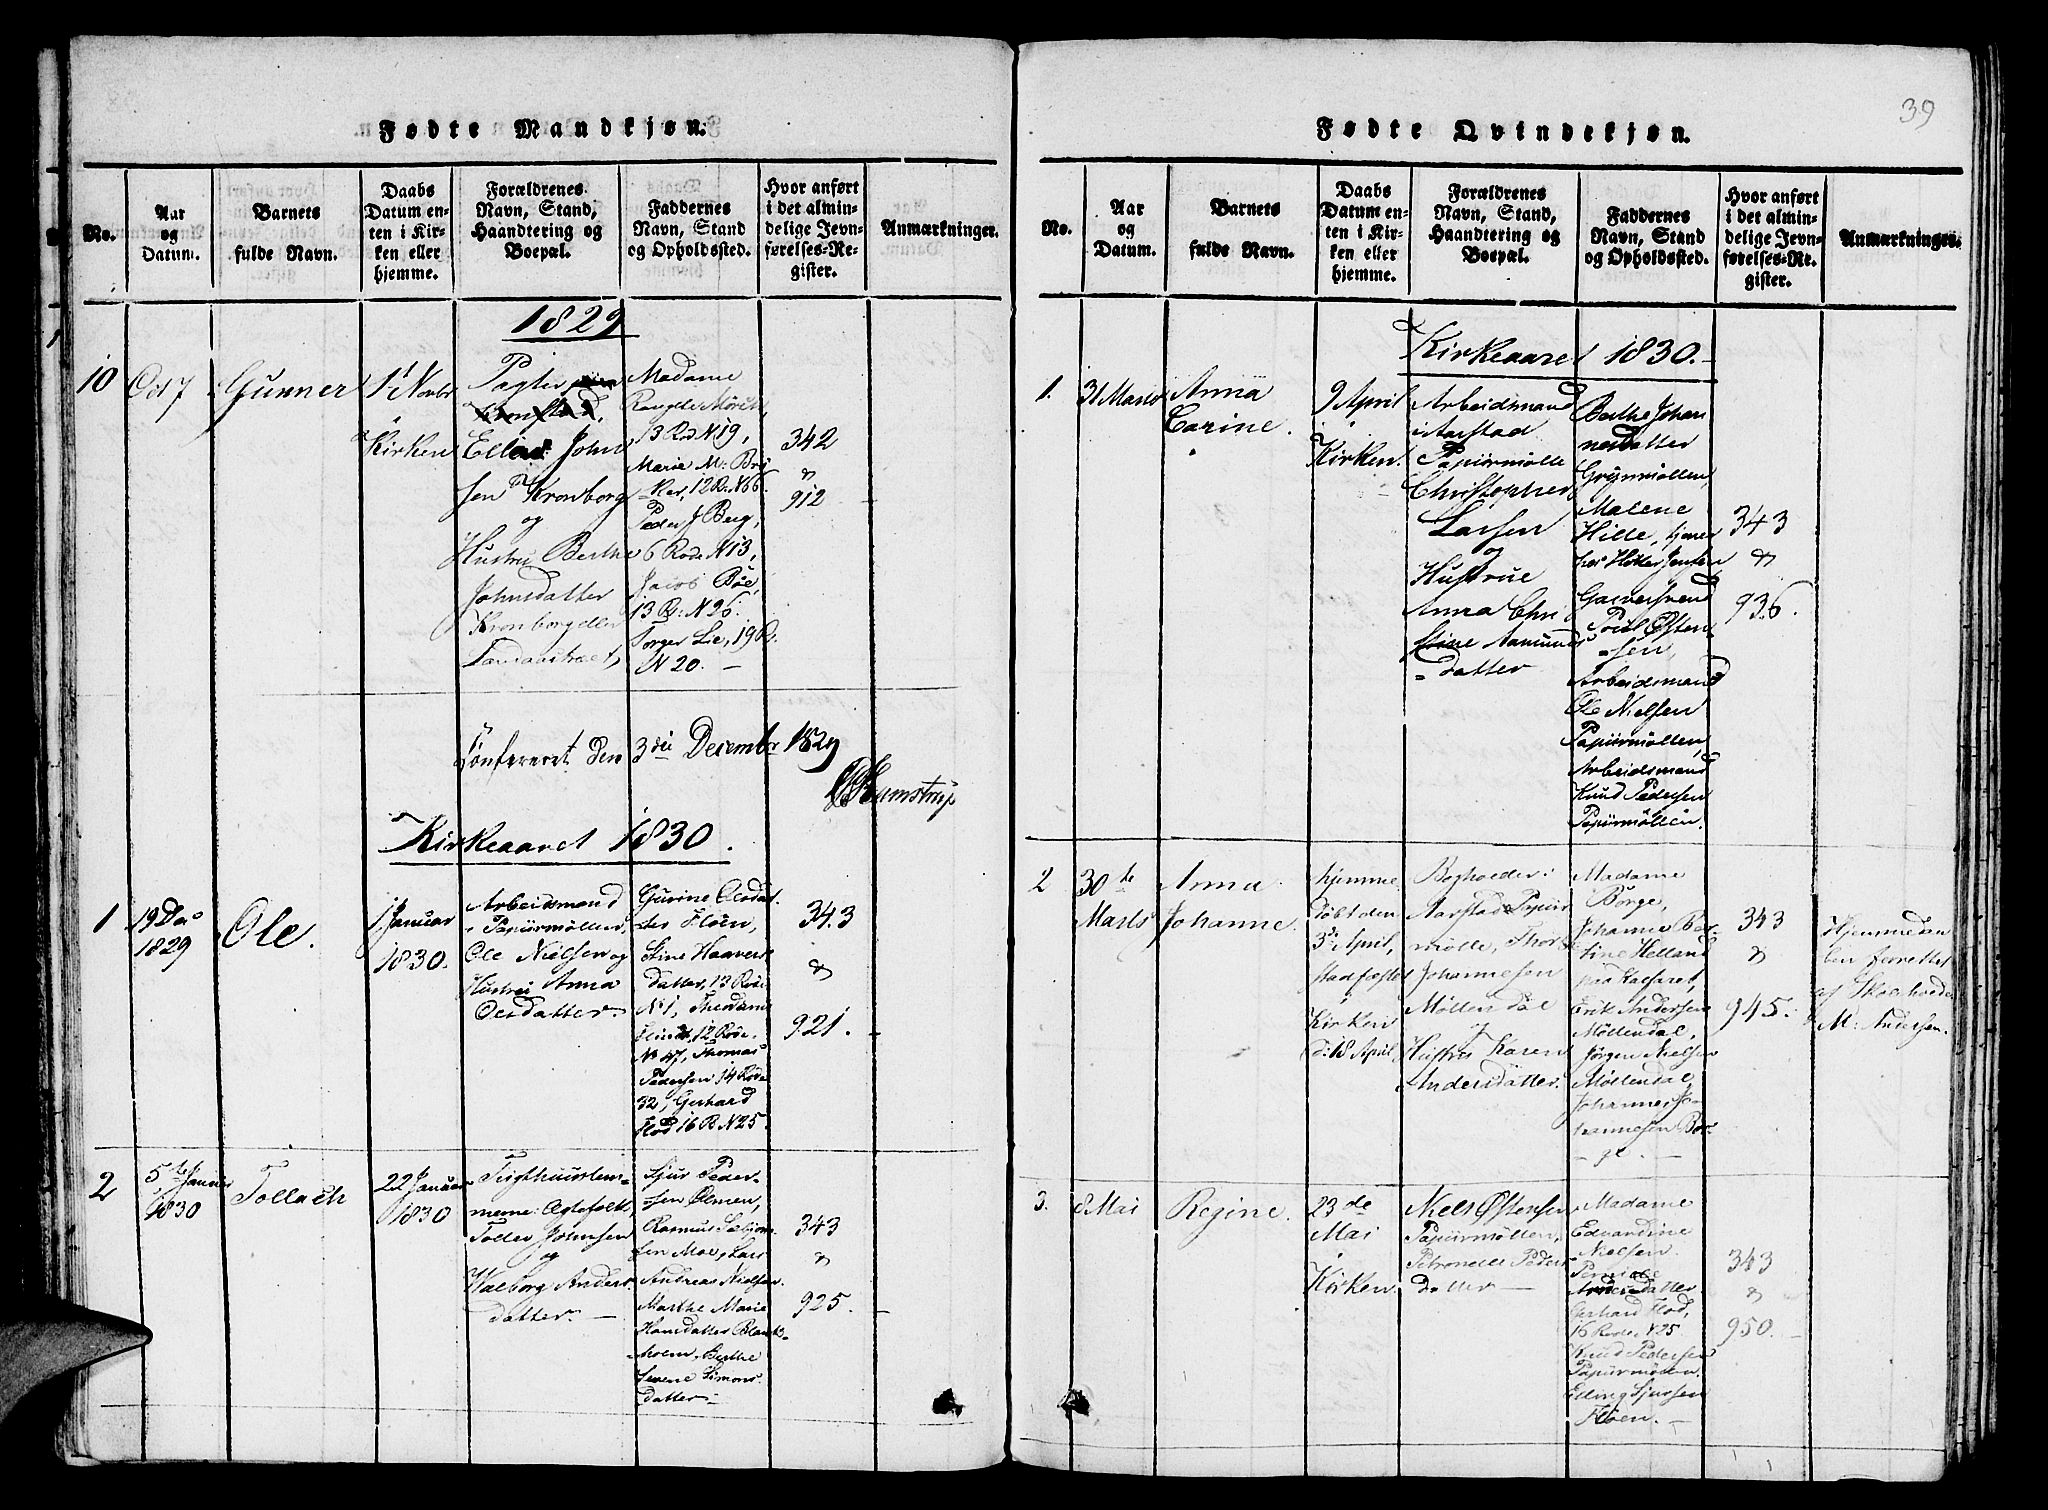 39
Fødte Mandkjøn.
No.
Aar
og
Datum.
Barnets
fulde Navn.
Daabs
Datum en-
ten i Kir-
ken eller
hjemme.
Forældrenes
Navn, Stand,
Haandtering og
Boepæl.
Faddernes
Navn, Stand
og Opholdssted.
Hvor anført
i det almin-
delige Jevn-
førelses-Re-
gister.
Anmærkninger.
1829
10
Oct 7
Gunner
1 Novbr
i
Kirken
Pagter
Kronstad,
John
sen Kronborg
og
Hustru Berthe
Johnsdatter
Kronborg eller
Landaastræet,
Madame
13 Rod N 19,
Marie M: Brø
ker, 12 R. N 66.
Peder J Berg,
6 Rode N 13,
Jacob Böe,
13 R: N 26.
Torger Lie, 19 R.
N 20. —
342
&
912
Confereret den 3die Decembr 1829
Kamstrup
Kirkeaaret 1830.
1
19 De
1829
Ole.
1 Januar
1830.
Arbeidsmand
Papiirmøllen,
Ole Nielsen og
Hustru Anna
Olesdatter.
Gurine Olesdat
ter Floen,
Stine Haavers
datter, 13 Rode
N 1,
12 Rode
N 47, Thomas
Pedersen 14 Rode
32, Gerhard
Flod 16 R N 25.
343
&
921.
2
5te Januar
1830
Tollach
22 Januar
1830
Tugthuuslem-
merne: Ægtefolk,
Toller Johnsen
og
Walborg Anders
datter. —
Sjur Peder
sen Olmen,
Rasmus
sen Moe, Lars
Andreas Nielsen.
Marthe Marie
Hansdatter Blank
holm, Berthe
Severe Simons
datter.
343
&
925.
Fødte Qvindekjøn.
No.
Aar
og
Datum.
Barnets
fulde Navn.
Daabs
Datum en-
ten i Kir-
ken eller
hjemme.
Forældrenes
Navn, Stand,
Haandtering og
Boepæl.
Faddernes
Navn, Stand
og Opholdssted.
Hvor anført
i det almin-
delige Jevn-
førelses-Re-
gister.
Anmærkninger.
Kirkeaaret 1830.
1.
31 Marts
Anna
Carine.
9 April
i
Kirken.
Arbeidsmand
Aarstad
Papiirmølle
Christopher
Larsen
og
Hustrue
Anna Chri
stine Aamunds
datter
Berthe Johan
nesdatter
Grynmøllen,
Malene
Hille, tjener
hos Høker Jensen
Garversvend
Poul Østen
sen,
Arbeidsmand
Ole Nielsen
Papiirmøllen,
Arbeidsmand
Knud Pedersen
Papiirmøllen.
343
&
936.
2
30te
Marts
Anna
Johanne.
hjemme
døbt den
3de April,
stadfæstet
i
Kirken
d: 18 April,
Bogholder
Aarstad Papiir
mølle, Thor
Johannesen
Möllendal
og
Hustru Karen
Andersdatter.
Madame
Börge,
Johanne Ber
tine Helland
paa Kalfaret,
Erik Andersen
Möllendal,
Jörgen Nielsen
Möllendal,
Johannes Jo-
hannesen Bör-
ge. —
343
&
945.
Hjemmedaa
ben forrettet
af Skoleholder
M: Andersen.
3.
8 Mai
Regine.
23de
Mai
i
Kirken
Niels Østensen
Papiirmøllen,
Petronelle Peders
datter —
Madame
Edvardine
Nielsen.
Pernille
Andersdatter
Gerhard Flod,
16 Rode N 25.
Knud Pedersen
Papiirmøllen
Elling Sjursen
Floen. —
343
&
950.